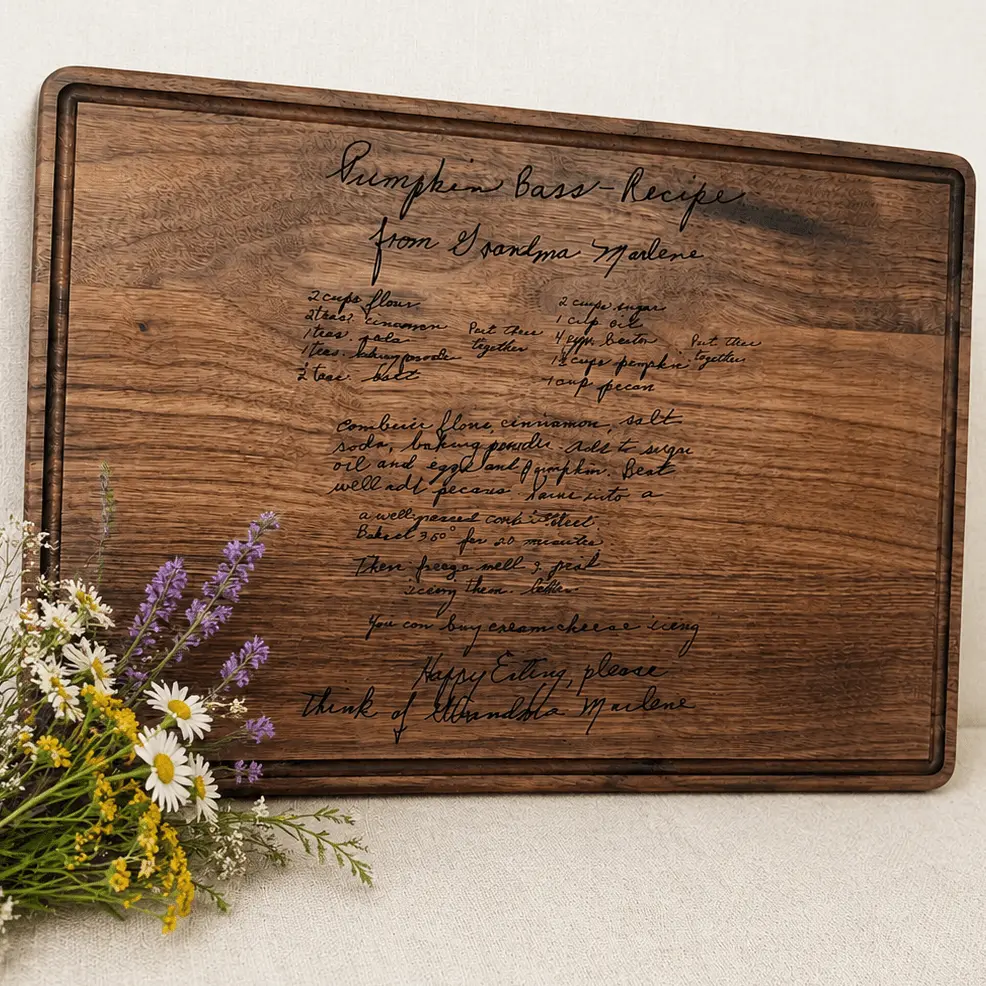 Pumpkin Bass - Recipe
from Grandma Marlene
2 cups flour
2 teas. cinnamon
1 teas. soda
1 teas. baking
2 teas. salt
Put these
together
2 cups sugar
1 cup oil
4 eggs
1 1/2 cups pumpkin
1 cup pecan
Put these
together
combine flour, cinnamon, salt
soda, baking powder. Add to sugar
oil and eggs and Pumpkin. Beat
well add pecans into a
a well
350° for 20 minutes
Then freeze well &
iceing them.
You can buy cream cheese iceng
Happy Eating, please
think of Grandma Marlene